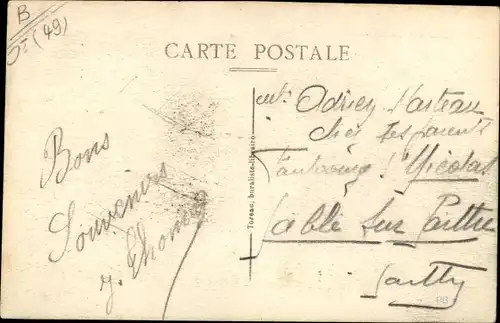 B
(49)
CARTE POSTALE
Bons
Souvenirs
y. Thomas
Adrien
chez ses parents
Faubourg St Nicolas
Sablé sur Sarthe
Sarthe
Toreau, buraliste-libraire